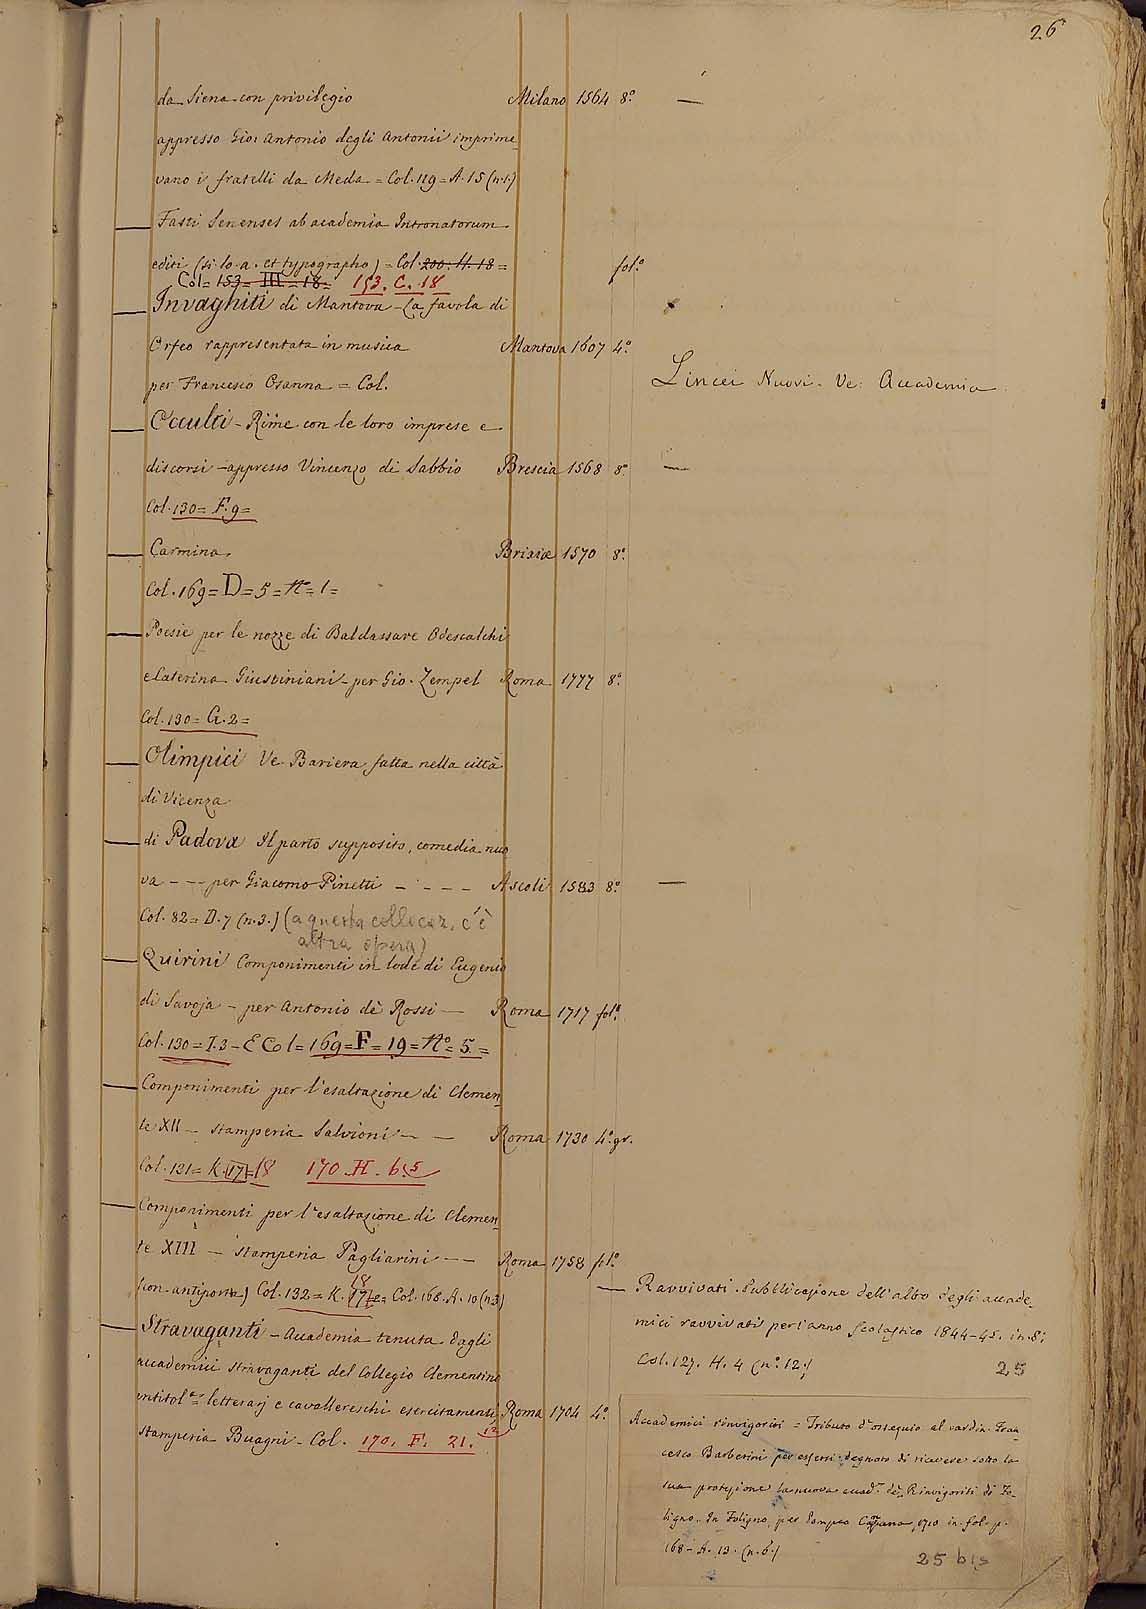 26
da Siena con privilegio Milano 1564 8.° —
appresso Gio: Antonio degli Antonii imprime_
vano i fratelli da Meda = Col. 119 = A. 15 (n.1.)
— Fasti Senenses ab academia Intronatorum
editi (si lo. a. et typographo) = Col. 200. H. 18 = fol.°
Col = 153 = III = 18 = 153. C. 18
— Invaghiti di Mantova - La favola di
Orfeo rappresentata in musica Mantova 1607 4.°
per Francesco Osanna = Col.
Lincei Nuovi. Ve: Accademia
— Occulti - Rime con le loro imprese e
discorsi - appresso Vincenzo di Sabbio Brescia 1568 8.° —
Col. 130 = F. 9 =
— Carmina Brixiæ 1570 8.°
Col. 169 = D = 5 = N° = 1 =
— Poesie per le nozze di Baldassare Odescalchi
e Caterina Giustiniani - per Gio. Zempel Roma 1777 8.°
Col. 130 = G. 2 =
— Olimpici Ve Bariera fatta nella città
di Vicenza
— di Padova Il parto supposito, comedia nuo
va - - - per Giacomo Pinetti - - - - Ascoli 1583 8.° —
Col. 82 = D. 7 (n. 3.) (a questa collocaz. c'è
altra opera)
— Quirini Componimenti in lode di Eugenio
di Savoja - per Antonio de Rossi — Roma 1717 fol.°
Col. 130 = I. 3 - E Col = 169 = F = 19 = N° = 5 =
— Componimenti per l'esaltazione di Clemen_
te XII — stamperia Salvioni - — Roma 1730 4.° gr.
Col. 121 = K. 17 = 18 170. H. 6.5
— Componimenti per l'esaltazione di Clemen_
te XIII — stamperia Pagliarini - — Roma 1758 fol.°
(con antiporta) Col. 132 = K. 17 18 e = Col. 168. A. 10 (n.3)
— Stravaganti - Accademia tenuta dagli
accademici stravaganti del Collegio Clementino
intitol.a = letterarj e cavallereschi esercitamenti Roma 1704 4.°
stamperia Buagni - Col. 170. F. 21. 12
— Ravvivati. Pubblicazione dell'albo degli accade_
mici ravvivati per l'anno scolastico 1844-45. in. 8.
Col. 127. H. 4 (n.° 12.) 25
Accademici rinvigoriti = Tributo d'ossequio al cardin. Fran_
cesco Barberini per essersi degnato di ricevere sotto la
sua protezione la nuova accad. de Rinvigoriti di Fo_
ligno. In Foligno, per Pompeo Campana, 1710 in fol. p.
168 - A. 13. (n. 6.)
25 bis